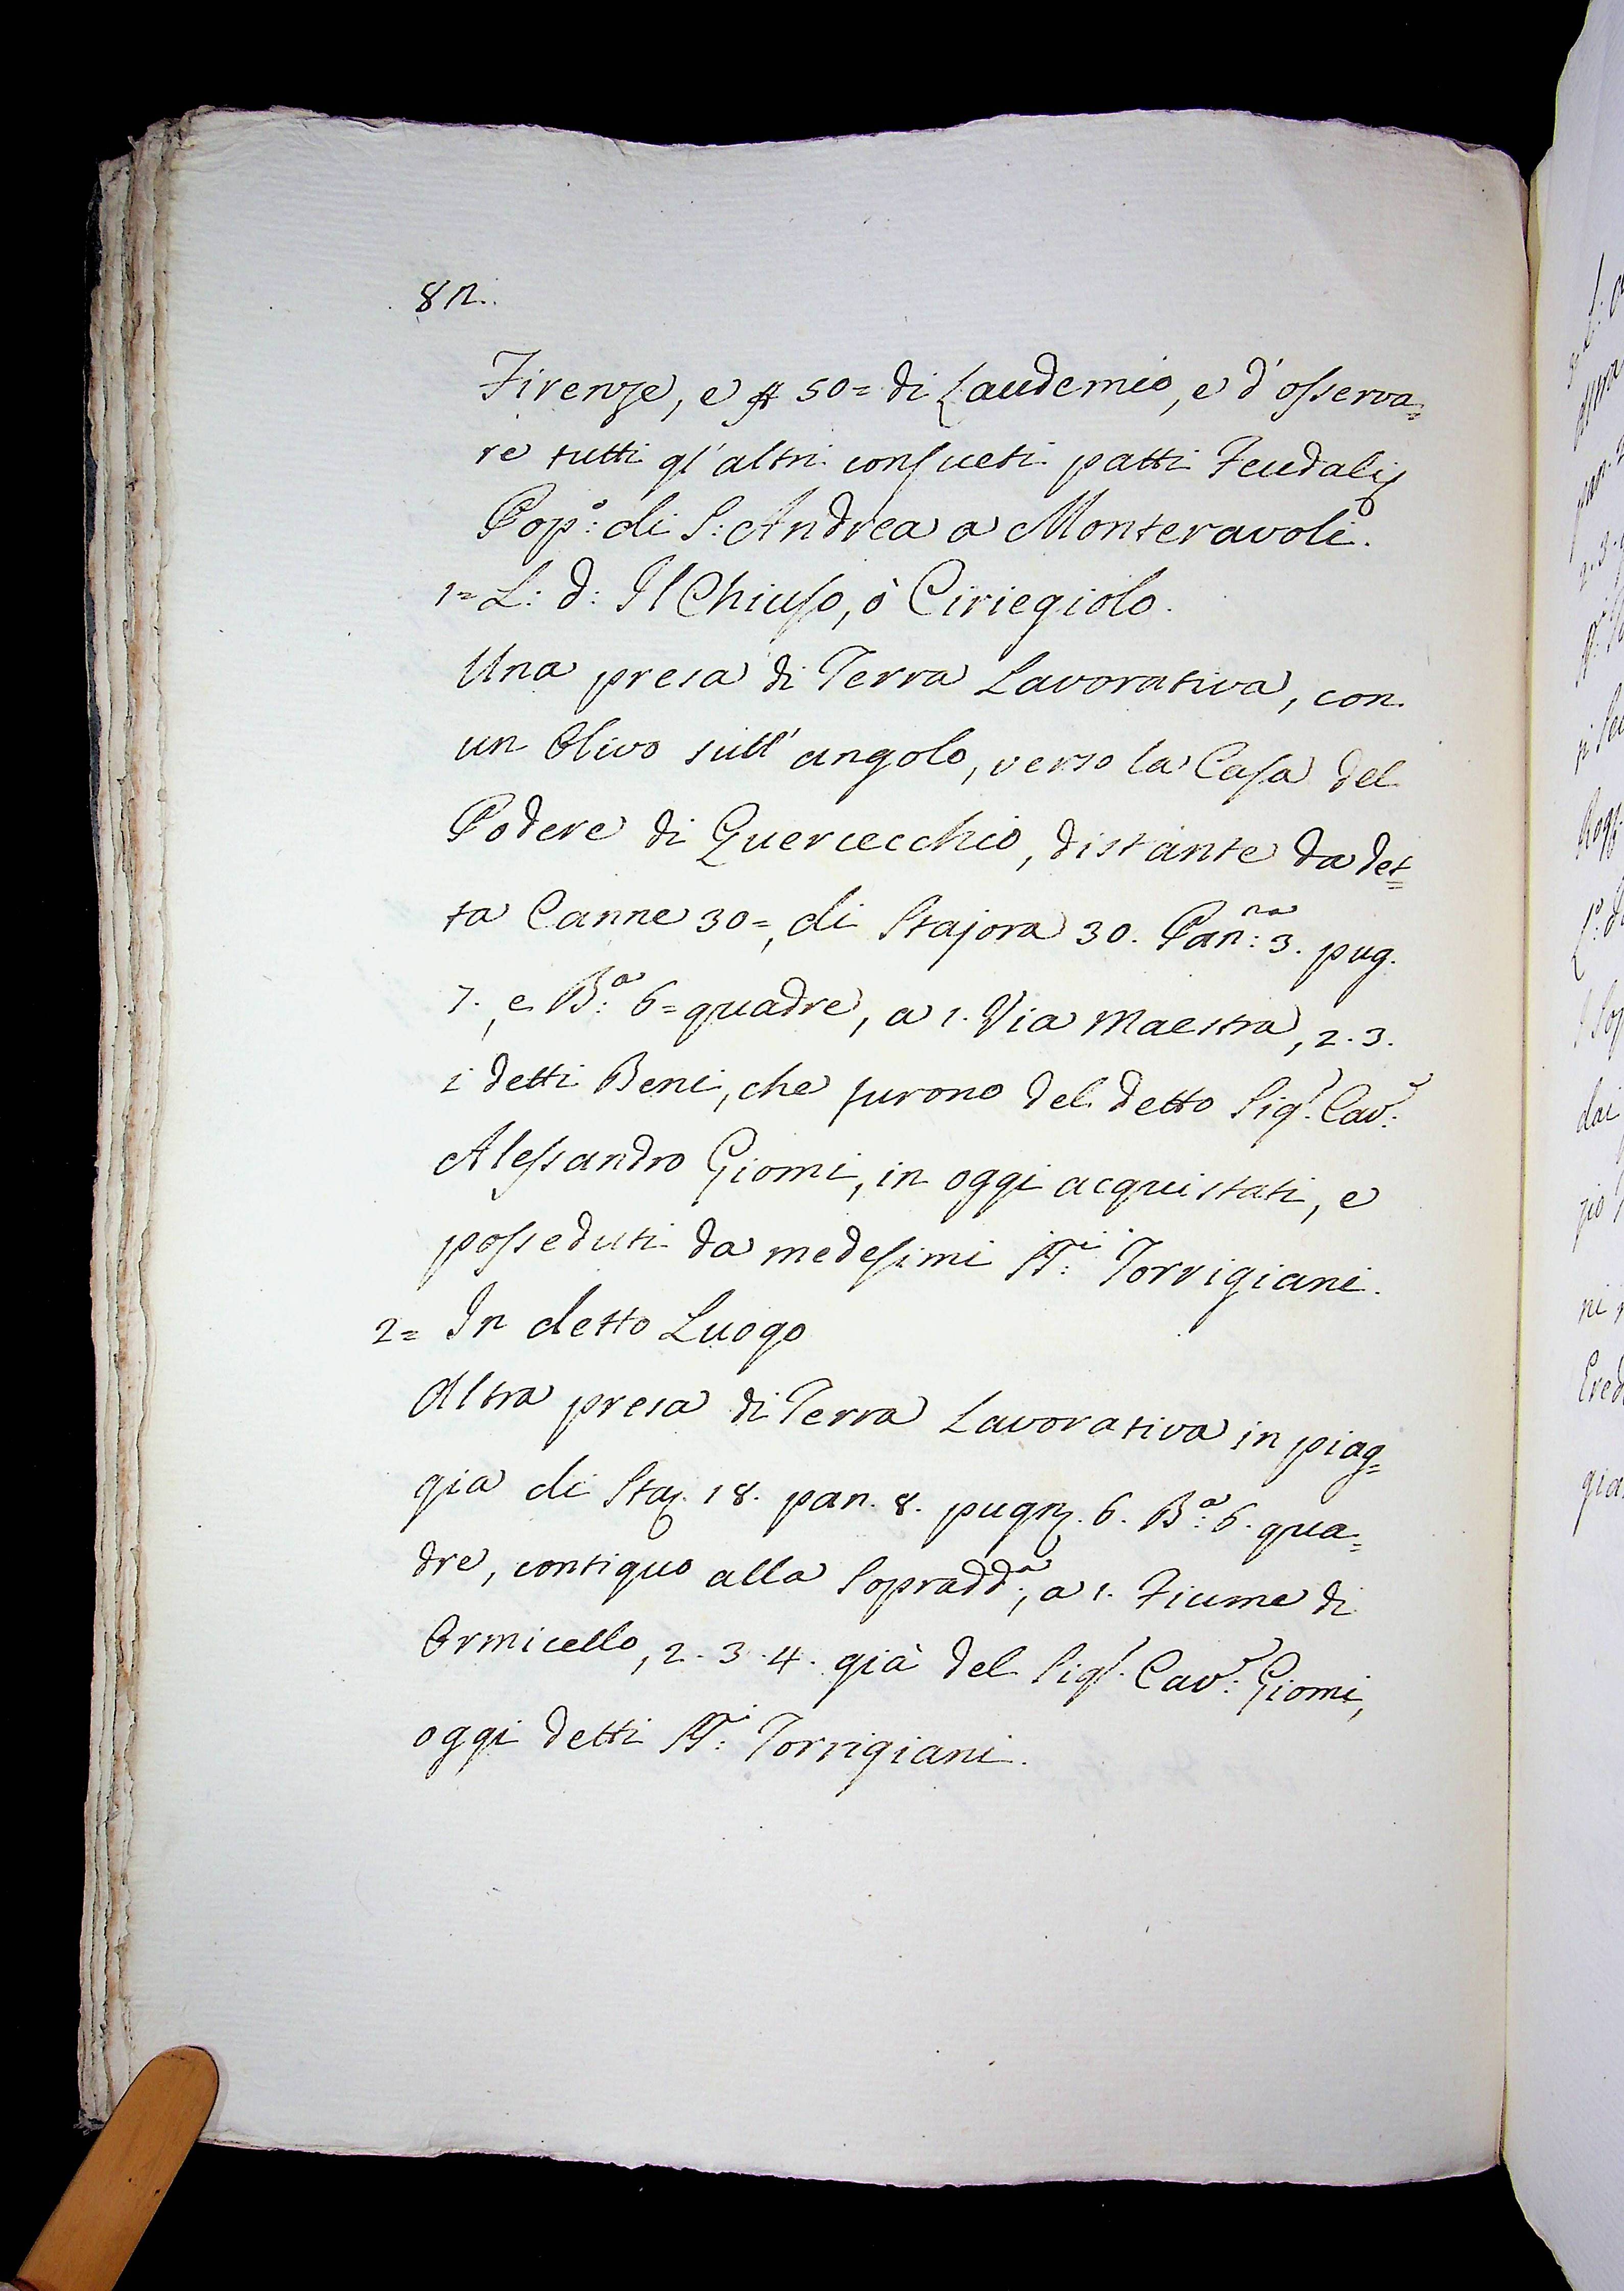 82.
Firenze, e ₰ 50= di Laudemio, e d'osserva=
re tutti gl'altri consueti patti Feudali
Pop.o: di S: Andrea a Monteravoli.
1= L: d: Il Chiuso, ò Ciriegiolo.
Una presa di Terra Lavorativa, con
un Olivo sull'angolo, verso la Casa del
Podere di Quercecchio, distante da det=
ta Canne 30=, di Stajora 30. Pan:na 3. pug.
7., e B:a 6= quadre, a 1. Via Maestra, 2. 3.
i detti Beni, che furono del detto Sig.r Cav:r
Alessandro Giomi, in oggi acquistati, e
posseduti da medesimi SS:i Torrigiani.
2= In detto Luogo
Altra presa di Terra Lavorativa in piag=
gia di Staj. 18. pan. 8. pugn. 6. B:a 6. qua=
dre, contiguo alla Sopradd:a, a 1. Fiume di
Ormicello, 2. 3. 4. già del Sig.r Cav:r Giomi,
oggi detti SS:i Torrigiani.